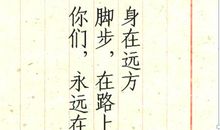 身在远方
脚步，在路上
你们，永远在